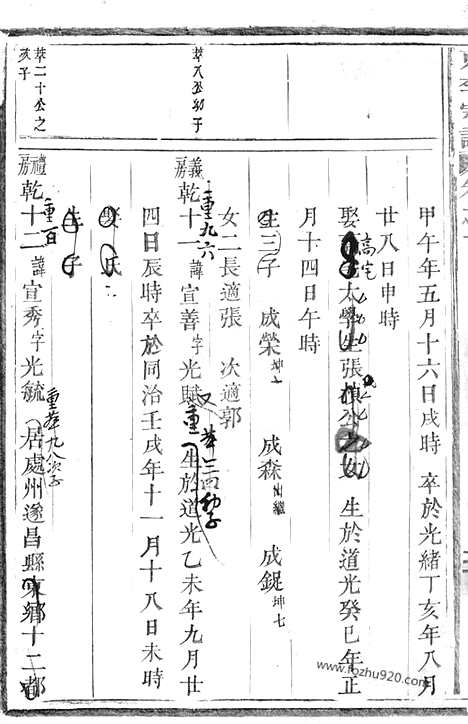 甲午年五月十六日戌時 卒於光緒丁亥年八月
廿八日申時
娶 太學生張 女 生於道光癸巳年正
高宅
月十四日午時
生三子 成榮 坤六 成森 出繼 成鋌 坤七
女二長適張 次適郭
萃八公幼子
義房乾十一 諱宣善字光賦 生於道光乙未年九月廿
重九六
又重 萃三四幼子
四日辰時卒於同治壬戌年十一月十八日未時
娶 氏
生 子
萃二十公之次子
禮房乾十二 諱宣秀字光毓 居處州遂昌縣東鄉十二都
重百
重萃九八次子
www.fozhu920.com